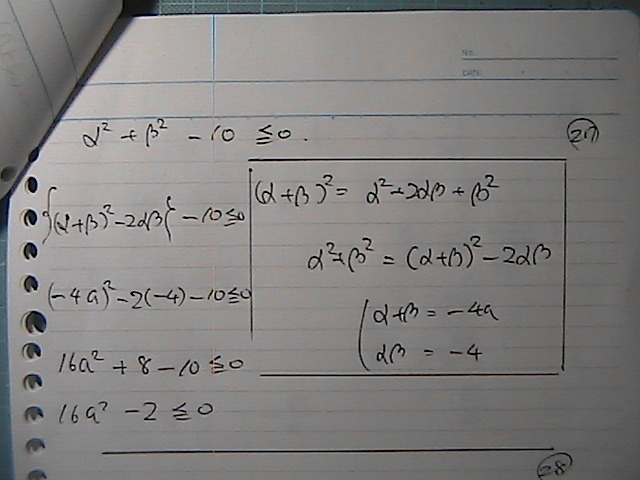 No.
DATE
α² + β² - 10 ≦ 0.
㉗
{(α+β)² - 2αβ} - 10 ≦ 0
(-4a)² - 2(-4) - 10 ≦ 0
16a² + 8 - 10 ≦ 0
16a² - 2 ≦ 0
(α+β)² = α² + 2αβ + β²
α² + β² = (α+β)² - 2αβ
α+β = -4a
αβ = -4
㉘